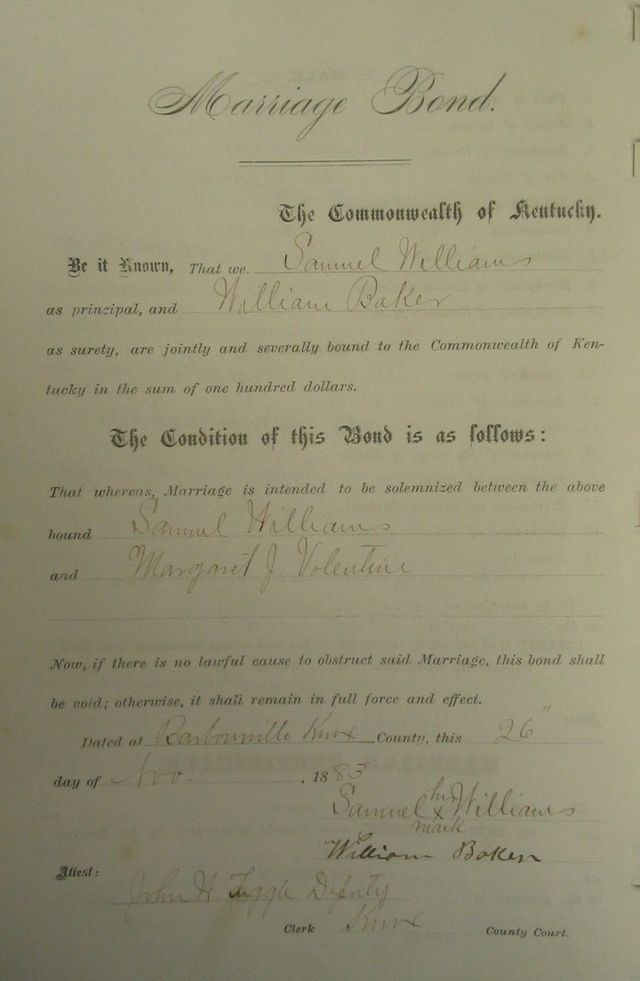 Marriage Bond.
The Commonwealth of Kentucky.
Be it Known, That we Samuel Williams
as principal, and William Baker
as surety, are jointly and severally bound to the Commonwealth of Ken-
tucky in the sum of one hundred dollars.
The Condition of this Bond is as follows:
That whereas, Marriage is intended to be solemnized between the above
bound Samuel Williams
and Margaret J. Volentine
Now, if there is no lawful cause to obstruct said Marriage, this bond shall
be void; otherwise, it shall remain in full force and effect.
Dated at Barbourville Knox County, this 26"
day of Nov. , 1883
Samuel his x mark Williams
William Baker
Attest:
John H Tuggle Deputy
Clerk Knox County Court.